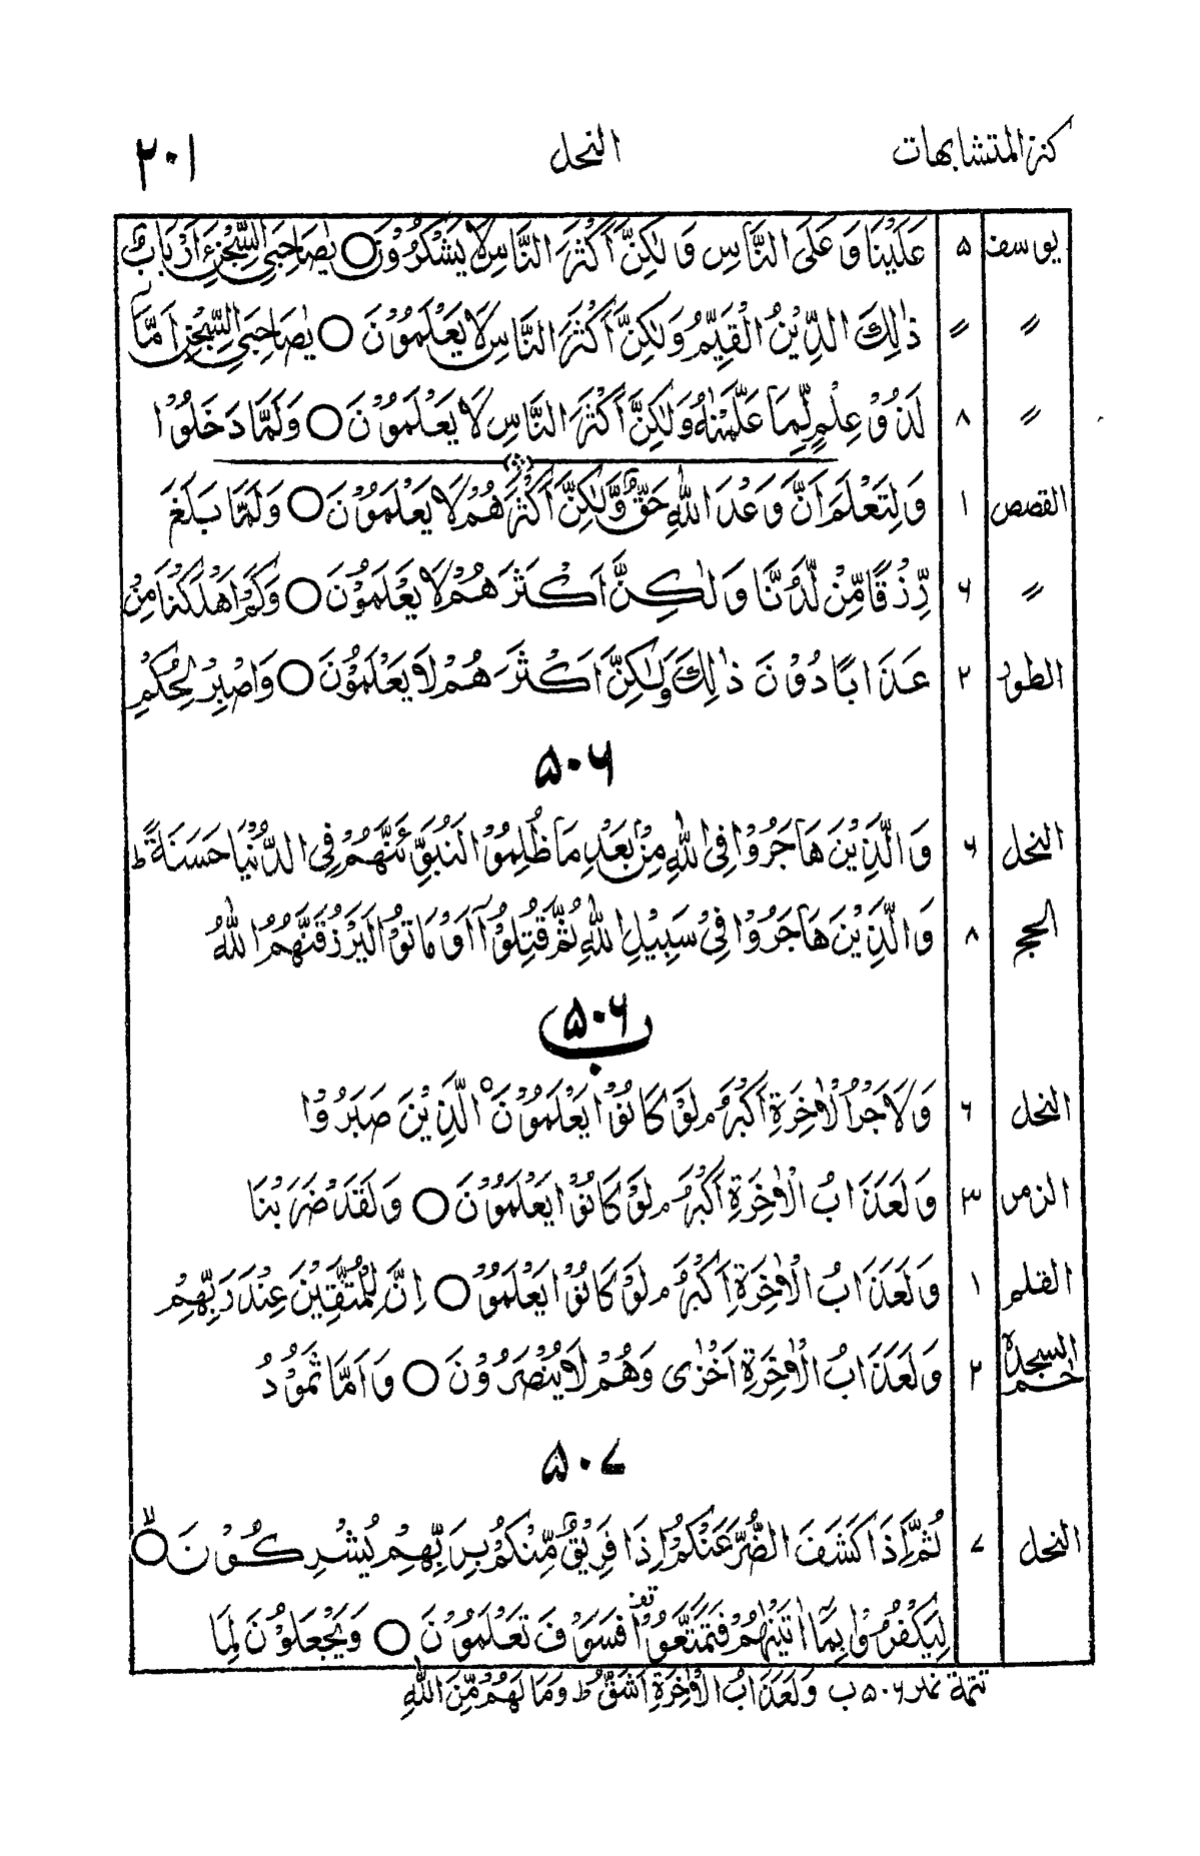 كنز المتشابهات النحل ٢٠١
يوسف ۵ عَلَيْنَا وَعَلَى النَّاسِ وَلٰكِنَّ أَكْثَرَ النَّاسِ لَا يَشْكُرُوْنَ ○ يٰصَاحِبَيِ السِّجْنِ ءَاَرْبَابٌ
〃 〃 ذٰلِكَ الدِّيْنُ الْقَيِّمُ وَلٰكِنَّ أَكْثَرَ النَّاسِ لَا يَعْلَمُوْنَ ○ يٰصَاحِبَيِ السِّجْنِ اَمَّا
〃 ٨ لَذُوْ عِلْمٍ لِّمَا عَلَّمْنٰهُ وَلٰكِنَّ أَكْثَرَ النَّاسِ لَا يَعْلَمُوْنَ ○ وَلَمَّا دَخَلُوْا
القصص ١ وَلِتَعْلَمَ اَنَّ وَعْدَ اللّٰهِ حَقٌّ وَّلٰكِنَّ أَكْثَرَهُمْ لَا يَعْلَمُوْنَ ○ وَلَمَّا بَلَغَ
〃 ۶ رِّزْقًا مِّنْ لَّدُنَّا وَلٰكِنَّ اَكْثَرَهُمْ لَا يَعْلَمُوْنَ ○ وَكَمْ اَهْلَكْنَا مِنْ
الطور ٢ عَذَابًا دُوْنَ ذٰلِكَ وَلٰكِنَّ اَكْثَرَهُمْ لَا يَعْلَمُوْنَ ○ وَاصْبِرْ لِحُكْمِ
۵۰۶
النحل ۶ وَالَّذِيْنَ هَاجَرُوْا فِي اللّٰهِ مِنْۢ بَعْدِ مَا ظُلِمُوْا لَنُبَوِّئَنَّهُمْ فِي الدُّنْيَا حَسَنَةً ط
الحج ٨ وَالَّذِيْنَ هَاجَرُوْا فِيْ سَبِيْلِ اللّٰهِ ثُمَّ قُتِلُوْٓا اَوْ مَاتُوْا لَيَرْزُقَنَّهُمُ اللّٰهُ
۵۰۶ ب
النحل ۶ وَلَاَجْرُ الْاٰخِرَةِ اَكْبَرُ م لَوْ كَانُوْا يَعْلَمُوْنَ ○ الَّذِيْنَ صَبَرُوْا
الزمر ٣ وَلَعَذَابُ الْاٰخِرَةِ اَكْبَرُ م لَوْ كَانُوْا يَعْلَمُوْنَ ○ وَلَقَدْ ضَرَبْنَا
القلم ١ وَلَعَذَابُ الْاٰخِرَةِ اَكْبَرُ م لَوْ كَانُوْا يَعْلَمُوْ ○ اِنَّ لِلْمُتَّقِيْنَ عِنْدَ رَبِّهِمْ
حم السجدة ٢ وَلَعَذَابُ الْاٰخِرَةِ اَخْزٰى وَهُمْ لَا يُنْصَرُوْنَ ○ وَاَمَّا ثَمُوْدُ
۵۰۷
النحل ۷ ثُمَّ اِذَا كَشَفَ الضُّرَّ عَنْكُمْ اِذَا فَرِيْقٌ مِّنْكُمْ بِرَبِّهِمْ يُشْرِكُوْنَ ○ لا
لِيَكْفُرُوْا بِمَآ اٰتَيْنٰهُمْ فَتَمَتَّعُوْا فَسَوْفَ تَعْلَمُوْنَ ○ وَيَجْعَلُوْنَ لِمَا
تتمة نمبر ۵۰۶ ب وَلَعَذَابُ الْاٰخِرَةِ اَشَقُّ ط وَمَا لَهُمْ مِّنَ اللّٰهِ